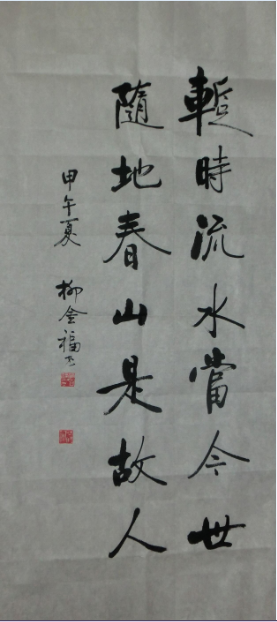 暫時流水當今世
隨地春山是故人
甲午夏 柳金福